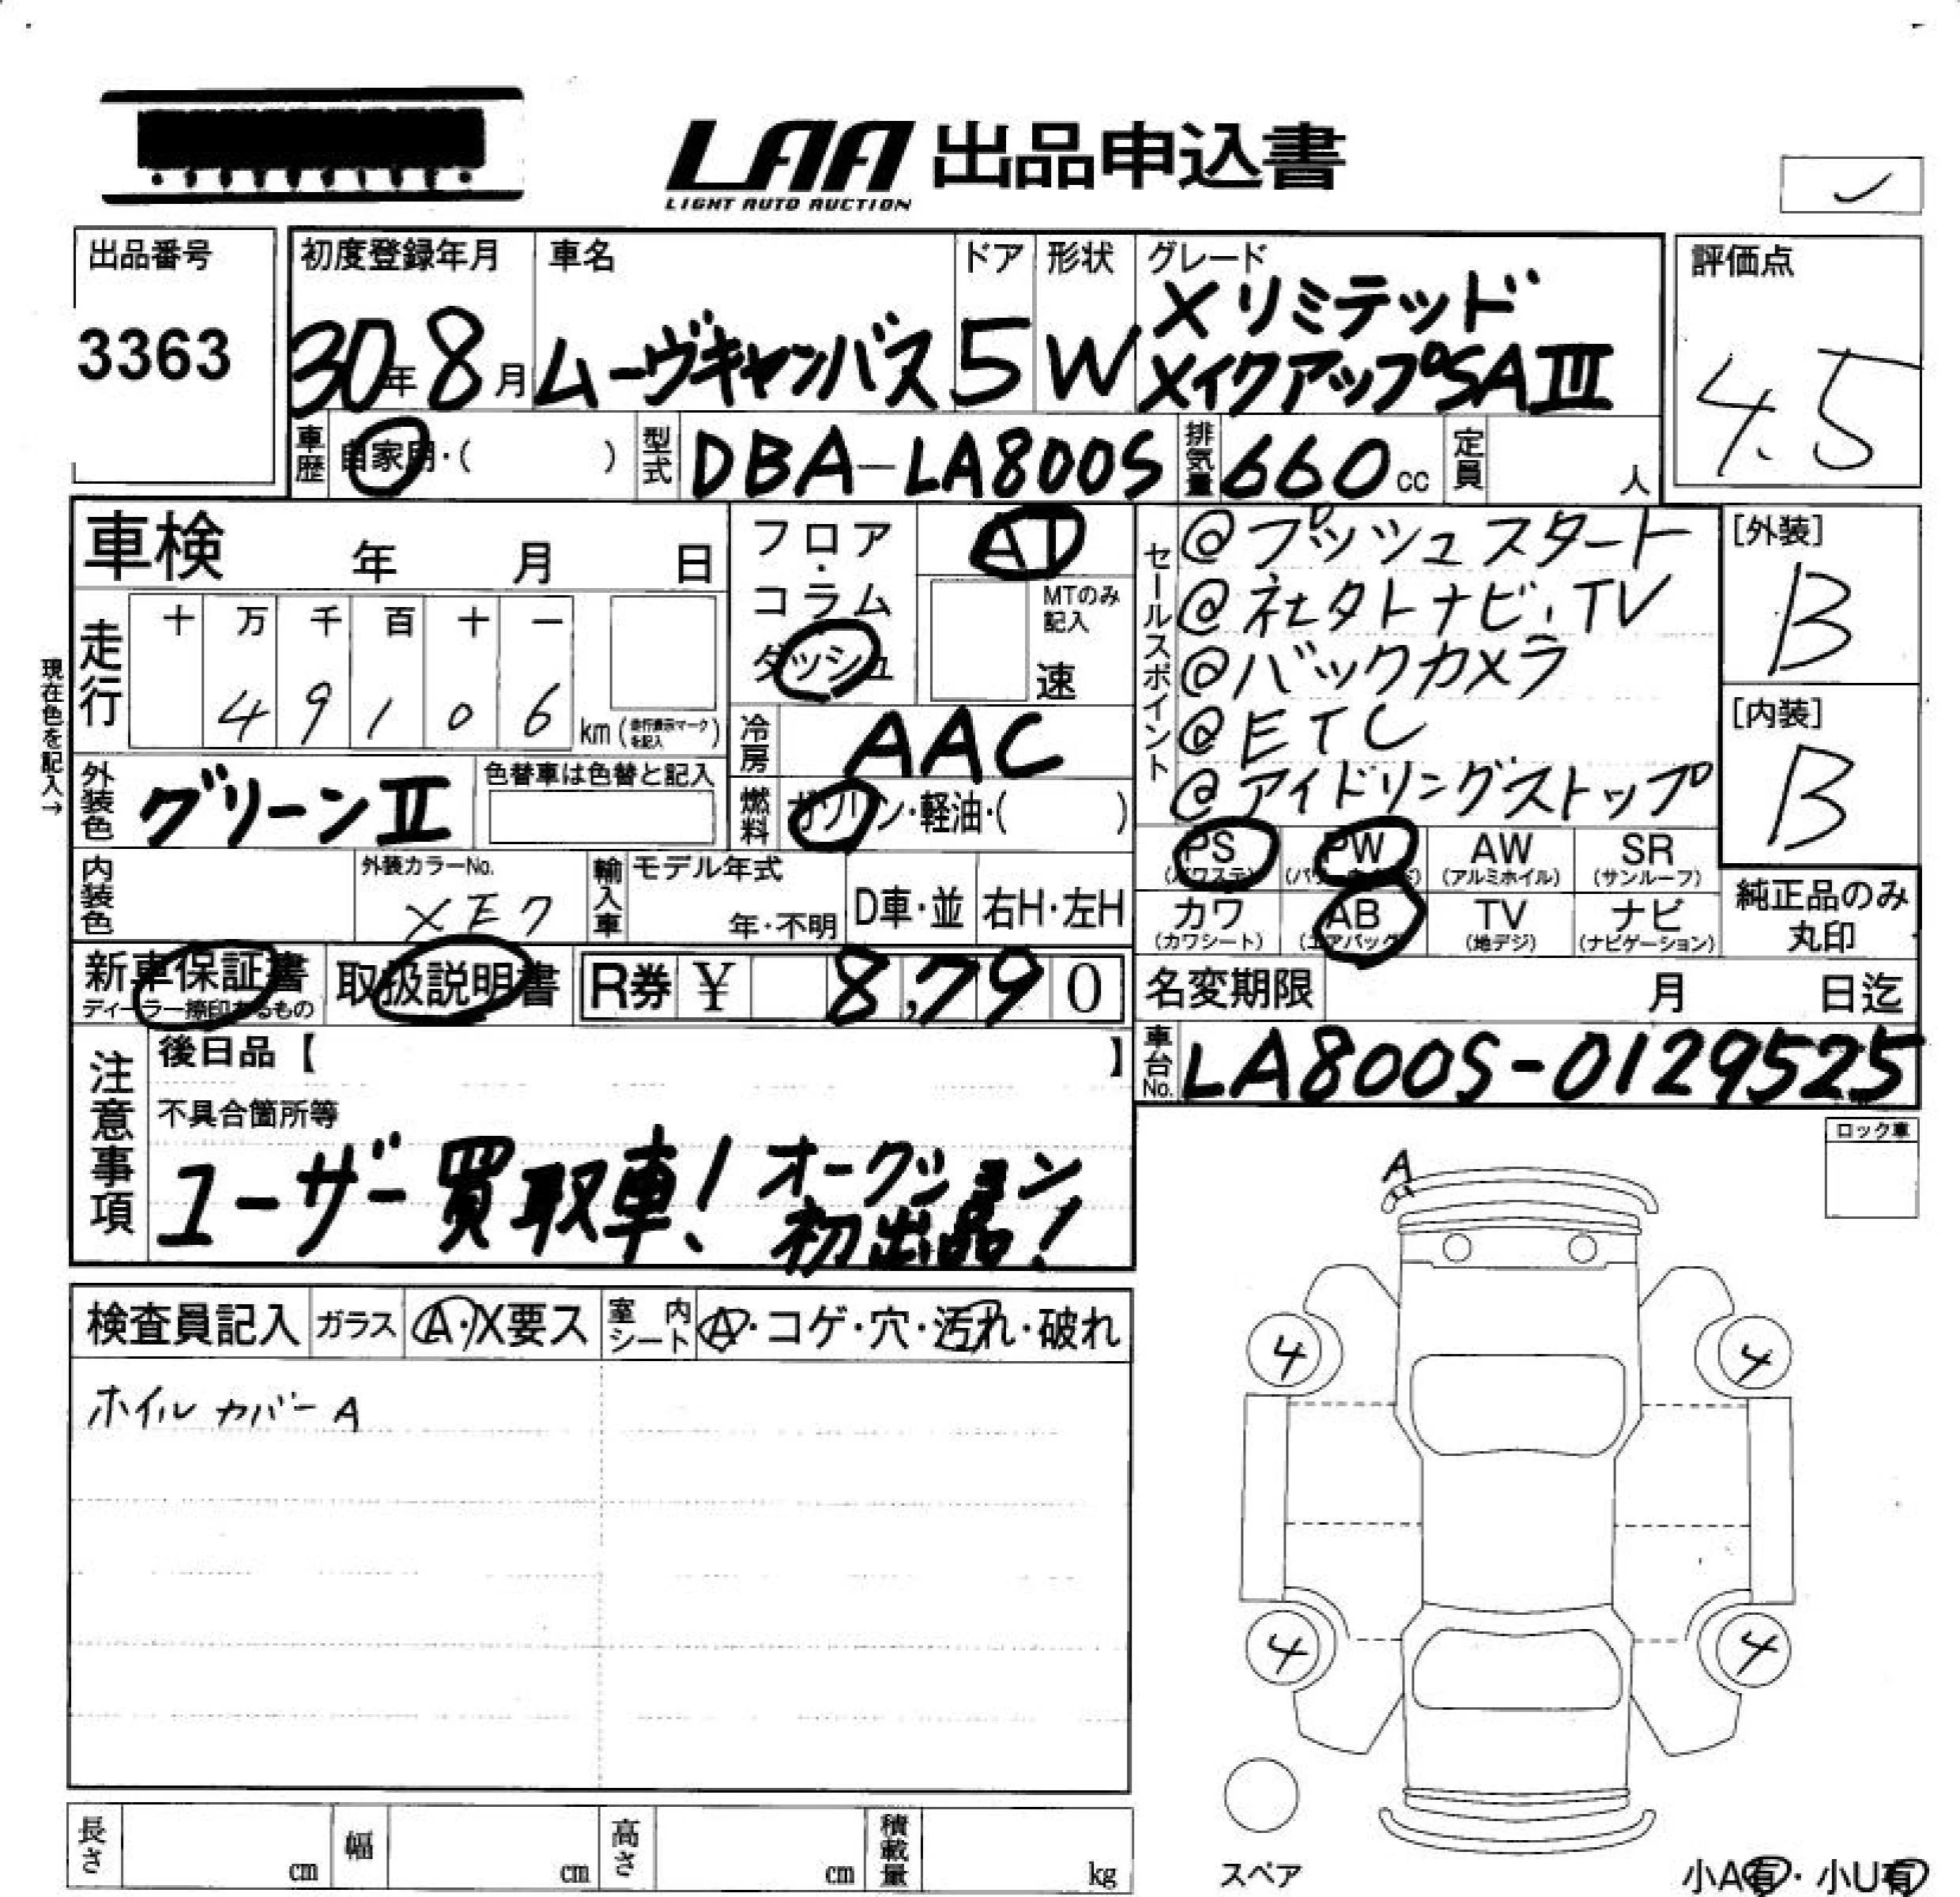 LAA 出品申込書
LIGHT AUTO AUCTION
出品番号
3363
初度登録年月
30年8月
車名
ムーヴキャンバス
ドア
5
形状
W
グレード
Xリミテッド
メイクアップSAⅢ
評価点
4.5
車歴
自家用・( )
型式
DBA-LA800S
排気量
660cc
定員
人
車検 年 月 日
走行
十 万 千 百 十 一
4 9 1 0 6 km (走行表示マークを記入)
現在色を記入→
フロア・コラム
ダッシュ
AT
MTのみ記入
速
冷房
AAC
燃料
ガソリン・軽油・( )
セールスポイント
@プッシュスタート
@社外ナビ・TV
@バックカメラ
@ETC
@アイドリングストップ
[外装]
B
[内装]
B
外装色
グリーンⅡ
色替車は色替と記入
内装色
外装カラーNo.
XE7
輸入車
モデル年式
年・不明
D車・並
右H・左H
PS
(パワステ)
PW
AW
(アルミホイル)
SR
(サンルーフ)
カワ
(カワシート)
AB
(エアバッグ)
TV
(地デジ)
ナビ
(ナビゲーション)
純正品のみ
丸印
新車保証書
ディーラー捺印あるもの
取扱説明書
R券 ¥ 8,790
名変期限 月 日迄
車台No.
LA800S-0129525
注意事項
後日品【 】
不具合箇所等
ユーザー買取車! オークション
初出品!
ロック車
A
検査員記入
ガラス
A・X要ス
室内シート
A・コゲ・穴・汚れ・破れ
ホイルカバーA
4
4
4
4
スペア
長さ cm
幅 cm
高さ cm
積載量 kg
小A有・小U有